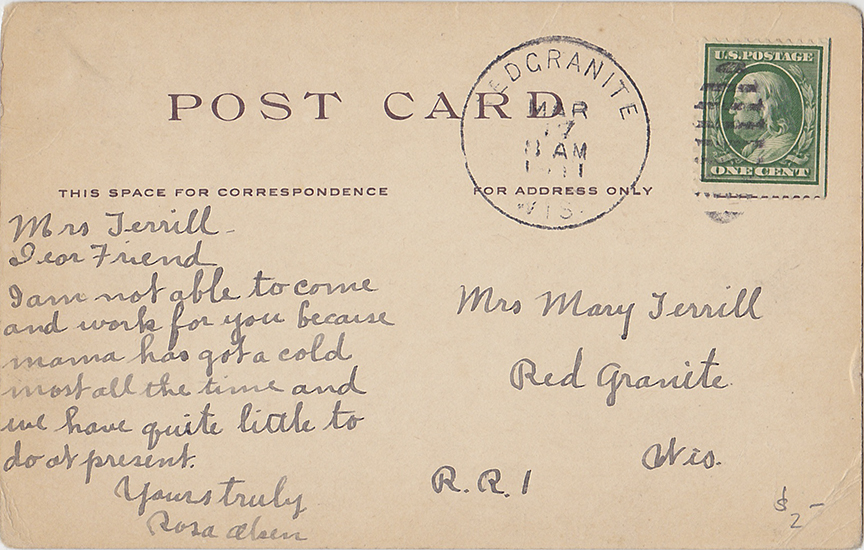 POST CARD
EDGRANITE
MAR
17
8 AM
1911
WIS.
U.S. POSTAGE
ONE CENT
THIS SPACE FOR CORRESPONDENCE
FOR ADDRESS ONLY
Mrs Terrill
Dear Friend
I am not able to come
and work for you because
mama has got a cold
most all the time and
we have quite little to
do at present.
Yours truly
Rosa Olsen
Mrs Mary Terrill
Red Granite
Wis.
R.R. 1
$2-